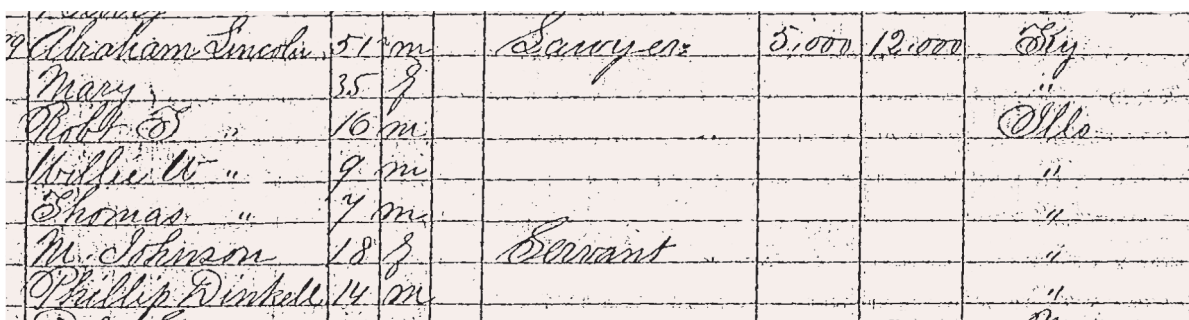 9 Abraham Lincoln 51 m Lawyer 5,000 12,000 Ky
Mary " 35 f "
Robt T " 16 m Ills
Willie W " 9 m "
Thomas " 7 m "
M. Johnson 18 f Servant "
Phillip Dinkell 14 m "